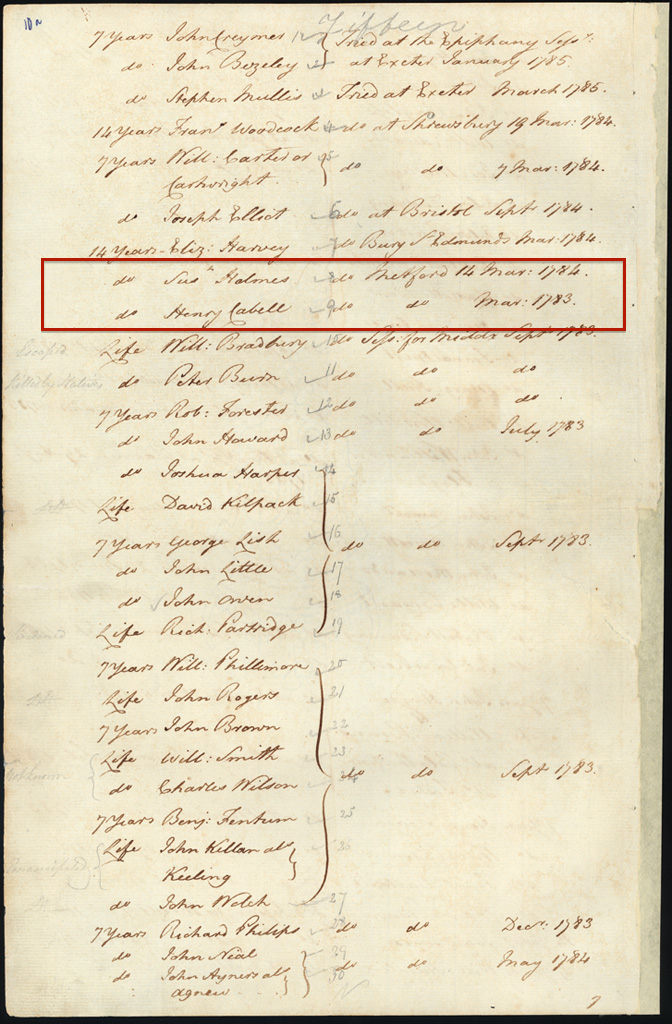 10a
Fifteen
7 Years John Creymes 1 Tried at the Epiphany Sess:
do John Bezeley 2 at Exeter January 1785.
do Stephen Mullis Tried at Exeter March 1785.
14 Years Frans Woodcock 4 do at Shrewsbury 19 Mar: 1784.
7 Years Will: Carter or 5 do do 7 Mar: 1784.
Cartwright.
do Joseph Elliot 6 do at Bristol Sept 1784.
14 Years Eliz: Harvey 7 do Bury St Edmunds Mar: 1784.
do Susn Holmes 8 do Thetford 14 Mar: 1784.
do Henry Cabell 9 do do Mar: 1783.
Escaped Life Will: Bradbury 10 do Sess: for Middx Septr 1783.
Killed by Natives do Peter Burn 11 do do do
7 Years Rob: Forester 12 do do do
do John Haward 13 do do July 1783
do Joshua Harper 14
Life David Kilpack 15
7 Years George Lish 16 do do Septr 1783.
do John Little 17
do John Owen 18
Life Rich: Partridge 19
7 Years Will: Phillimore 20
Life John Rogers 21
7 Years John Brown 22
Life Will: Smith 23
do Charles Wilson 24 do do Sept 1783.
7 Years Benj: Fentum 25
Life John Kellan als 26
Keeling
do John Welch 27
7 Years Richard Philips 28 do do Decr: 1783
do John Neal 29 do do May 1784
do John Ayners als 30
Agnew